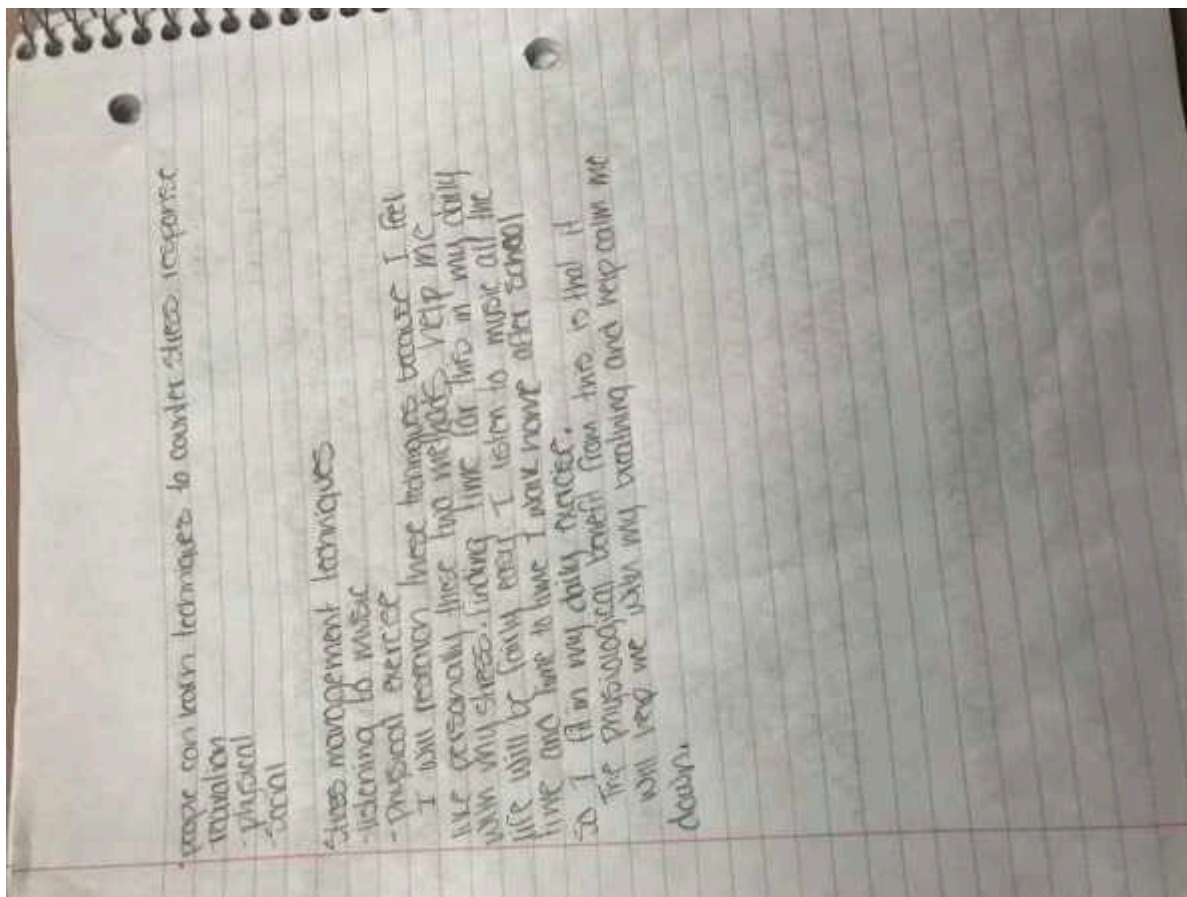 -people can learn techniques to counter stress response
-relaxation
-physical
-social
Stress management techniques
-listening to music
-physical exercise
I will research these techniques because I feel
like personally these two methods help me
with my stress. finding time for this in my daily
life will be fairly easy I listen to music all the
time and time to time I walk home after school
so I fit in my daily exercise.
The physiological benefit from this is that it
will help me with my breathing and help calm me
down.